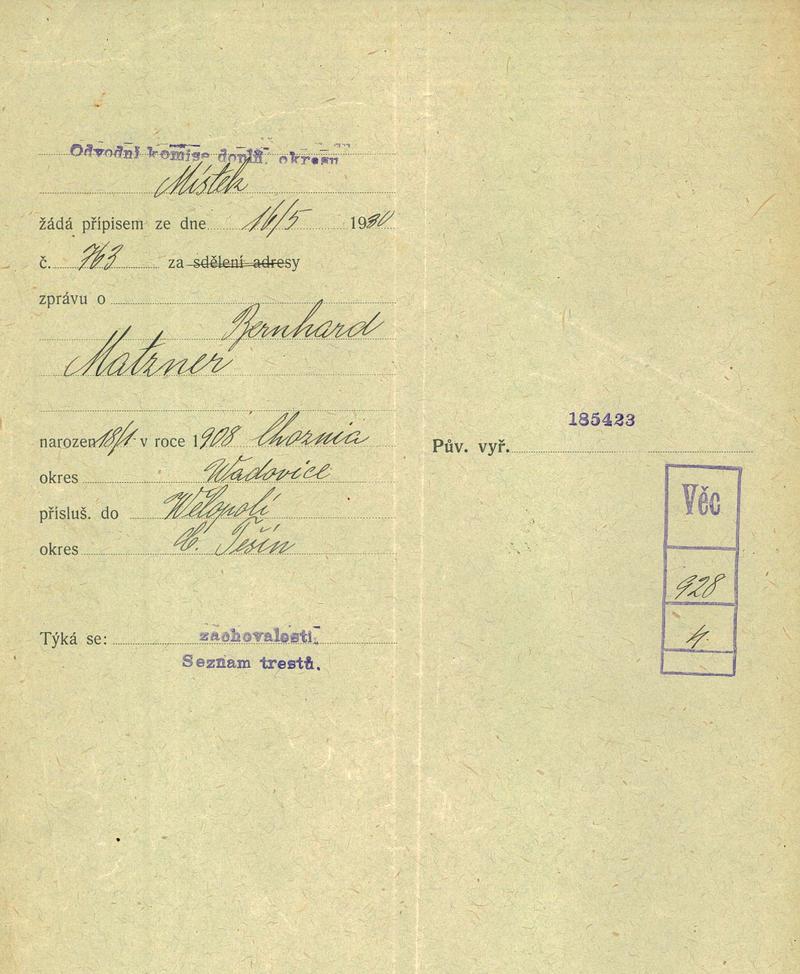 Odvodní komise doplň. okresu
Místek
žádá přípisem ze dne 16/5 1930
č. 763 za sdělení adresy
zprávu o
Bernhard
Matzner
narozen 18/1 v roce 1908 Choznia
okres Wadovice
přísluš. do Wělopolí
okres Č. Těšín
Týká se: zachovalosti.
Seznam trestů.
185423
Pův. vyř.
Věc
928
4